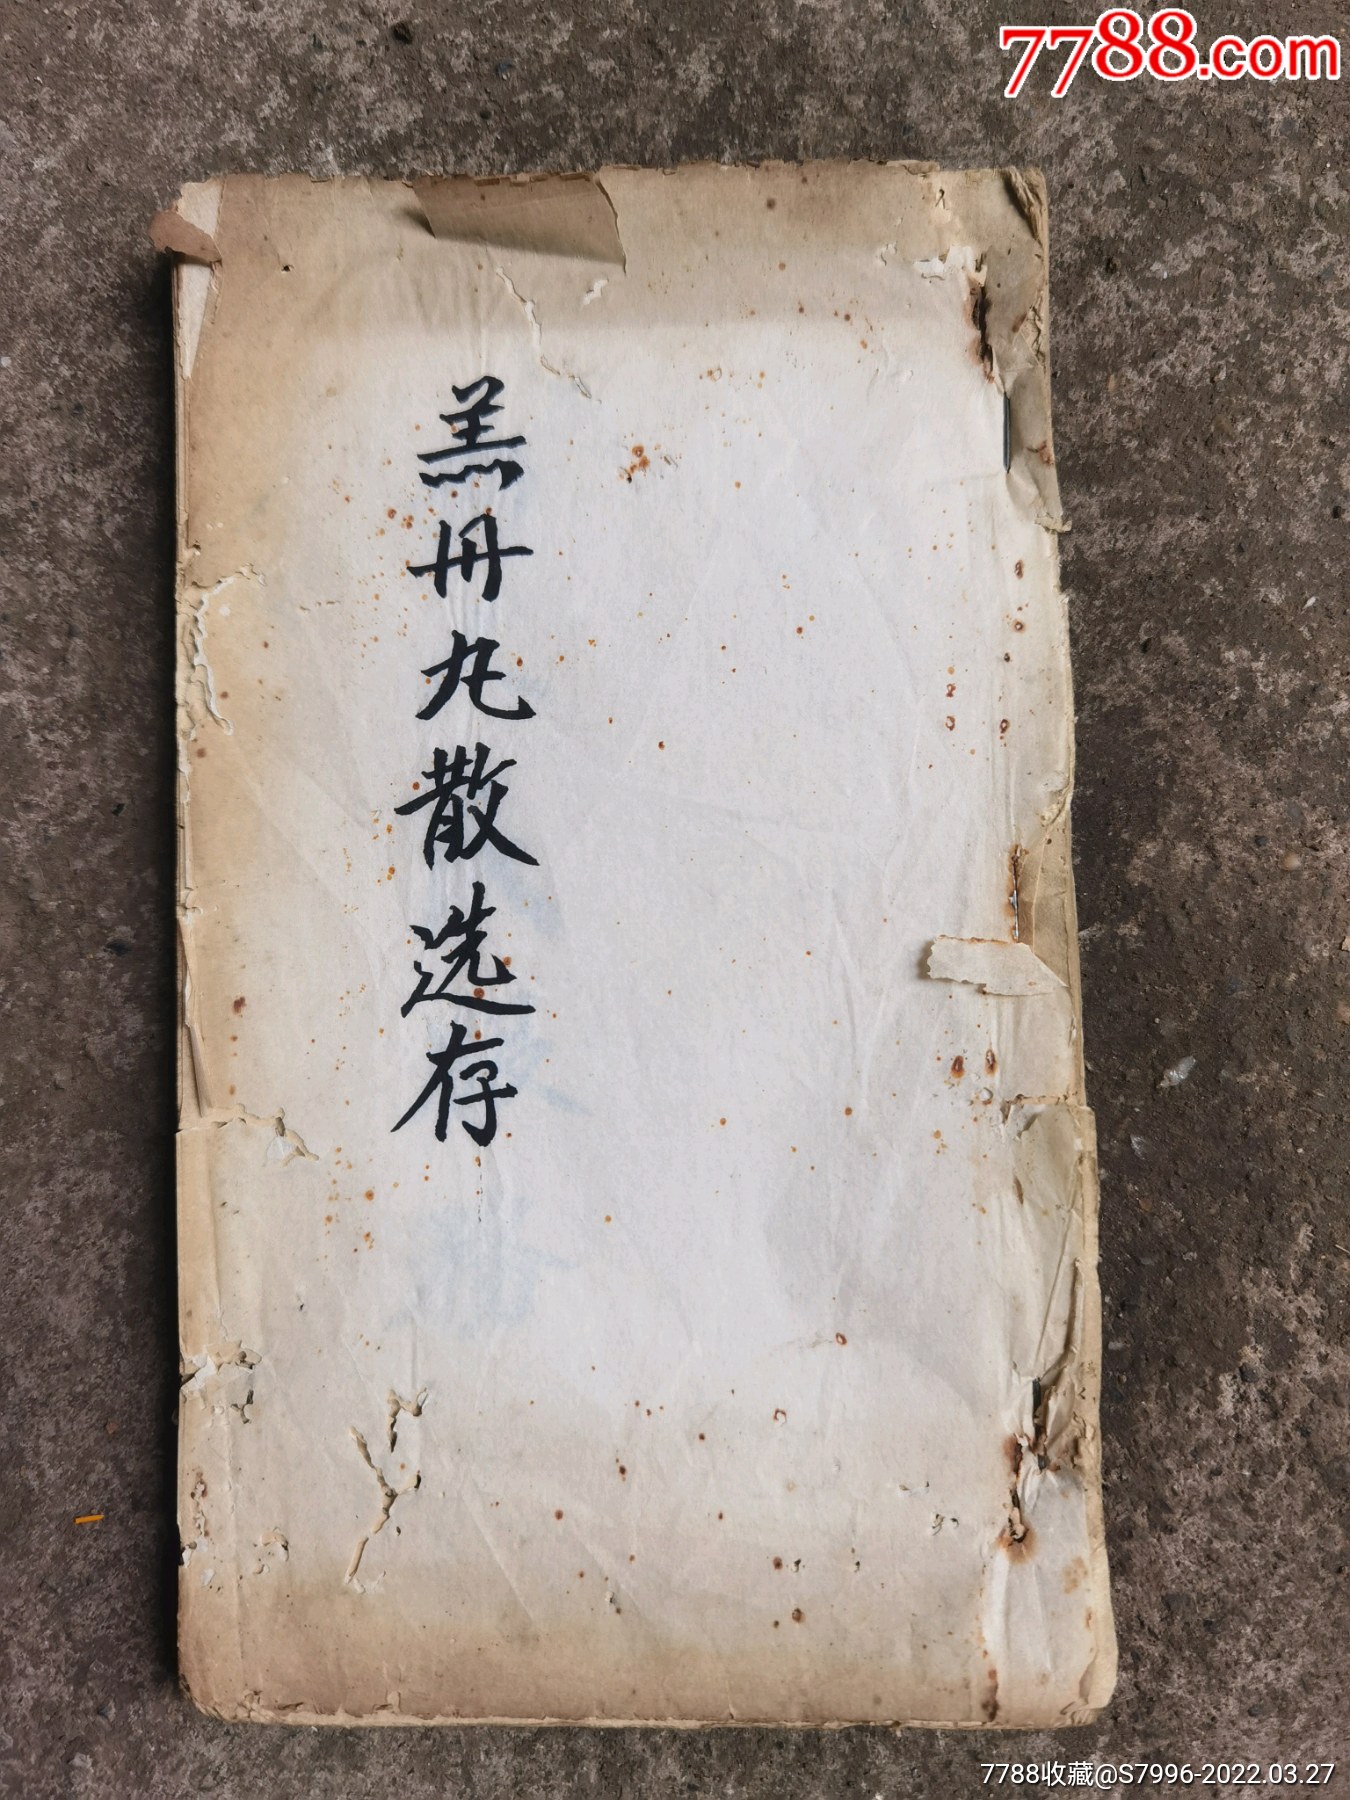 7788.com
羔丹丸散选存
7788收藏@S7996-2022.03.27